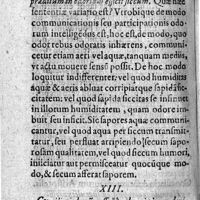 prædictum in odoribus efficit siccum. Quæ hæc
sententiæ variatio est? Vtrobique de modo
communicationis seu participationis odo-
rum intelligendus est, hoc est, de modo, quo
odor rebus odoratis inhærens, communi-
cetur etiam aëri vel aquæ, tanquam mediis,
vt actu mouere sensũ possit. De hoc modo
loquitur indifferenter; vel quod humiditas
aquæ & aeris abluat corripiatque sapidã sic-
citatem; vel quod sapida siccitas se insinuet
in illorum humiditatem, quam odore im-
buet seu inficit. Sic sapores aquæ communi-
cantur, vel quod aqua per siccum transmit-
tatur, seu perfluat arripiendo, siccum sapo-
rosam qualitatem, vel quod siccum humori,
iniiciatur aut permisceatur quocũque mo-
do, & secum afferat saporem.
XIII.